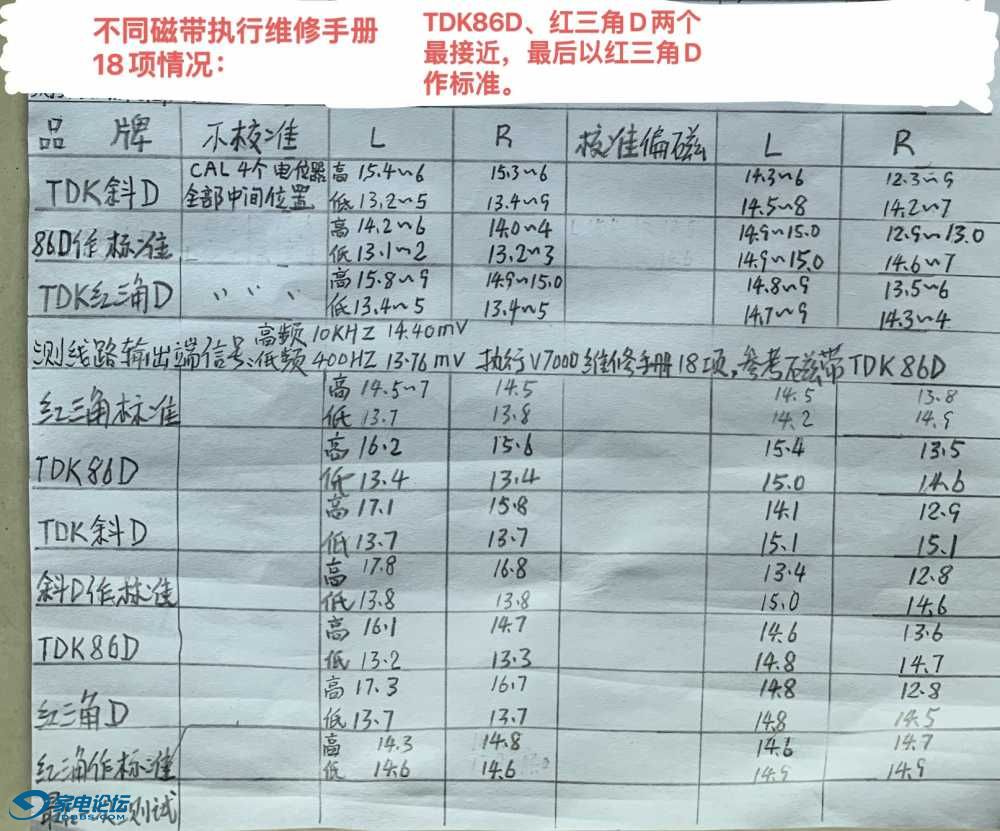 不同磁带执行维修手册
18项情况：
TDK86D、红三角D两个
最接近，最后以红三角D
作标准。
品 牌 不校准 L R 校准偏磁 L R
CAL 4个电位器 高 15.4～6 15.3～6 14.3～6 12.3～9
TDK斜D 全部中间位置 低 13.2～5 13.4～9 14.5～8 14.2～7
高 14.2～6 14.0～4 14.9～15.0 12.9～13.0
86D作标准 低 13.1～2 13.2～3 14.9～15.0 14.6～7
高 15.8～9 14.9～15.0 14.8～9 13.5～6
TDK红三角D 〃 〃 〃 低 13.4～5 13.4～5 14.7～9 14.3～4
高频10KHZ 14.40mV
测线路输出端信号、低频400HZ 13.76mV 执行V7000维修手册18项，参考磁带TDK86D
高 14.5～7 14.5 14.5 13.8
红三角标准 低 13.7 13.8 14.2 14.9
高 16.2 15.6 15.4 13.5
TDK86D 低 13.4 13.4 15.0 14.6
高 17.1 15.8 14.1 12.9
TDK斜D 低 13.7 13.7 15.1 15.1
高 17.8 16.8 13.4 12.8
斜D作标准 低 13.8 13.8 15.0 14.6
高 16.1 14.7 14.6 13.6
TDK86D 低 13.2 13.3 14.8 14.7
高 17.3 16.7 14.8 12.8
红三角D 低 13.7 13.7 14.8 14.5
高 14.3 14.8 14.6 14.7
红三角作标准 低 14.6 14.6 14.9 14.9
测试
家电论坛